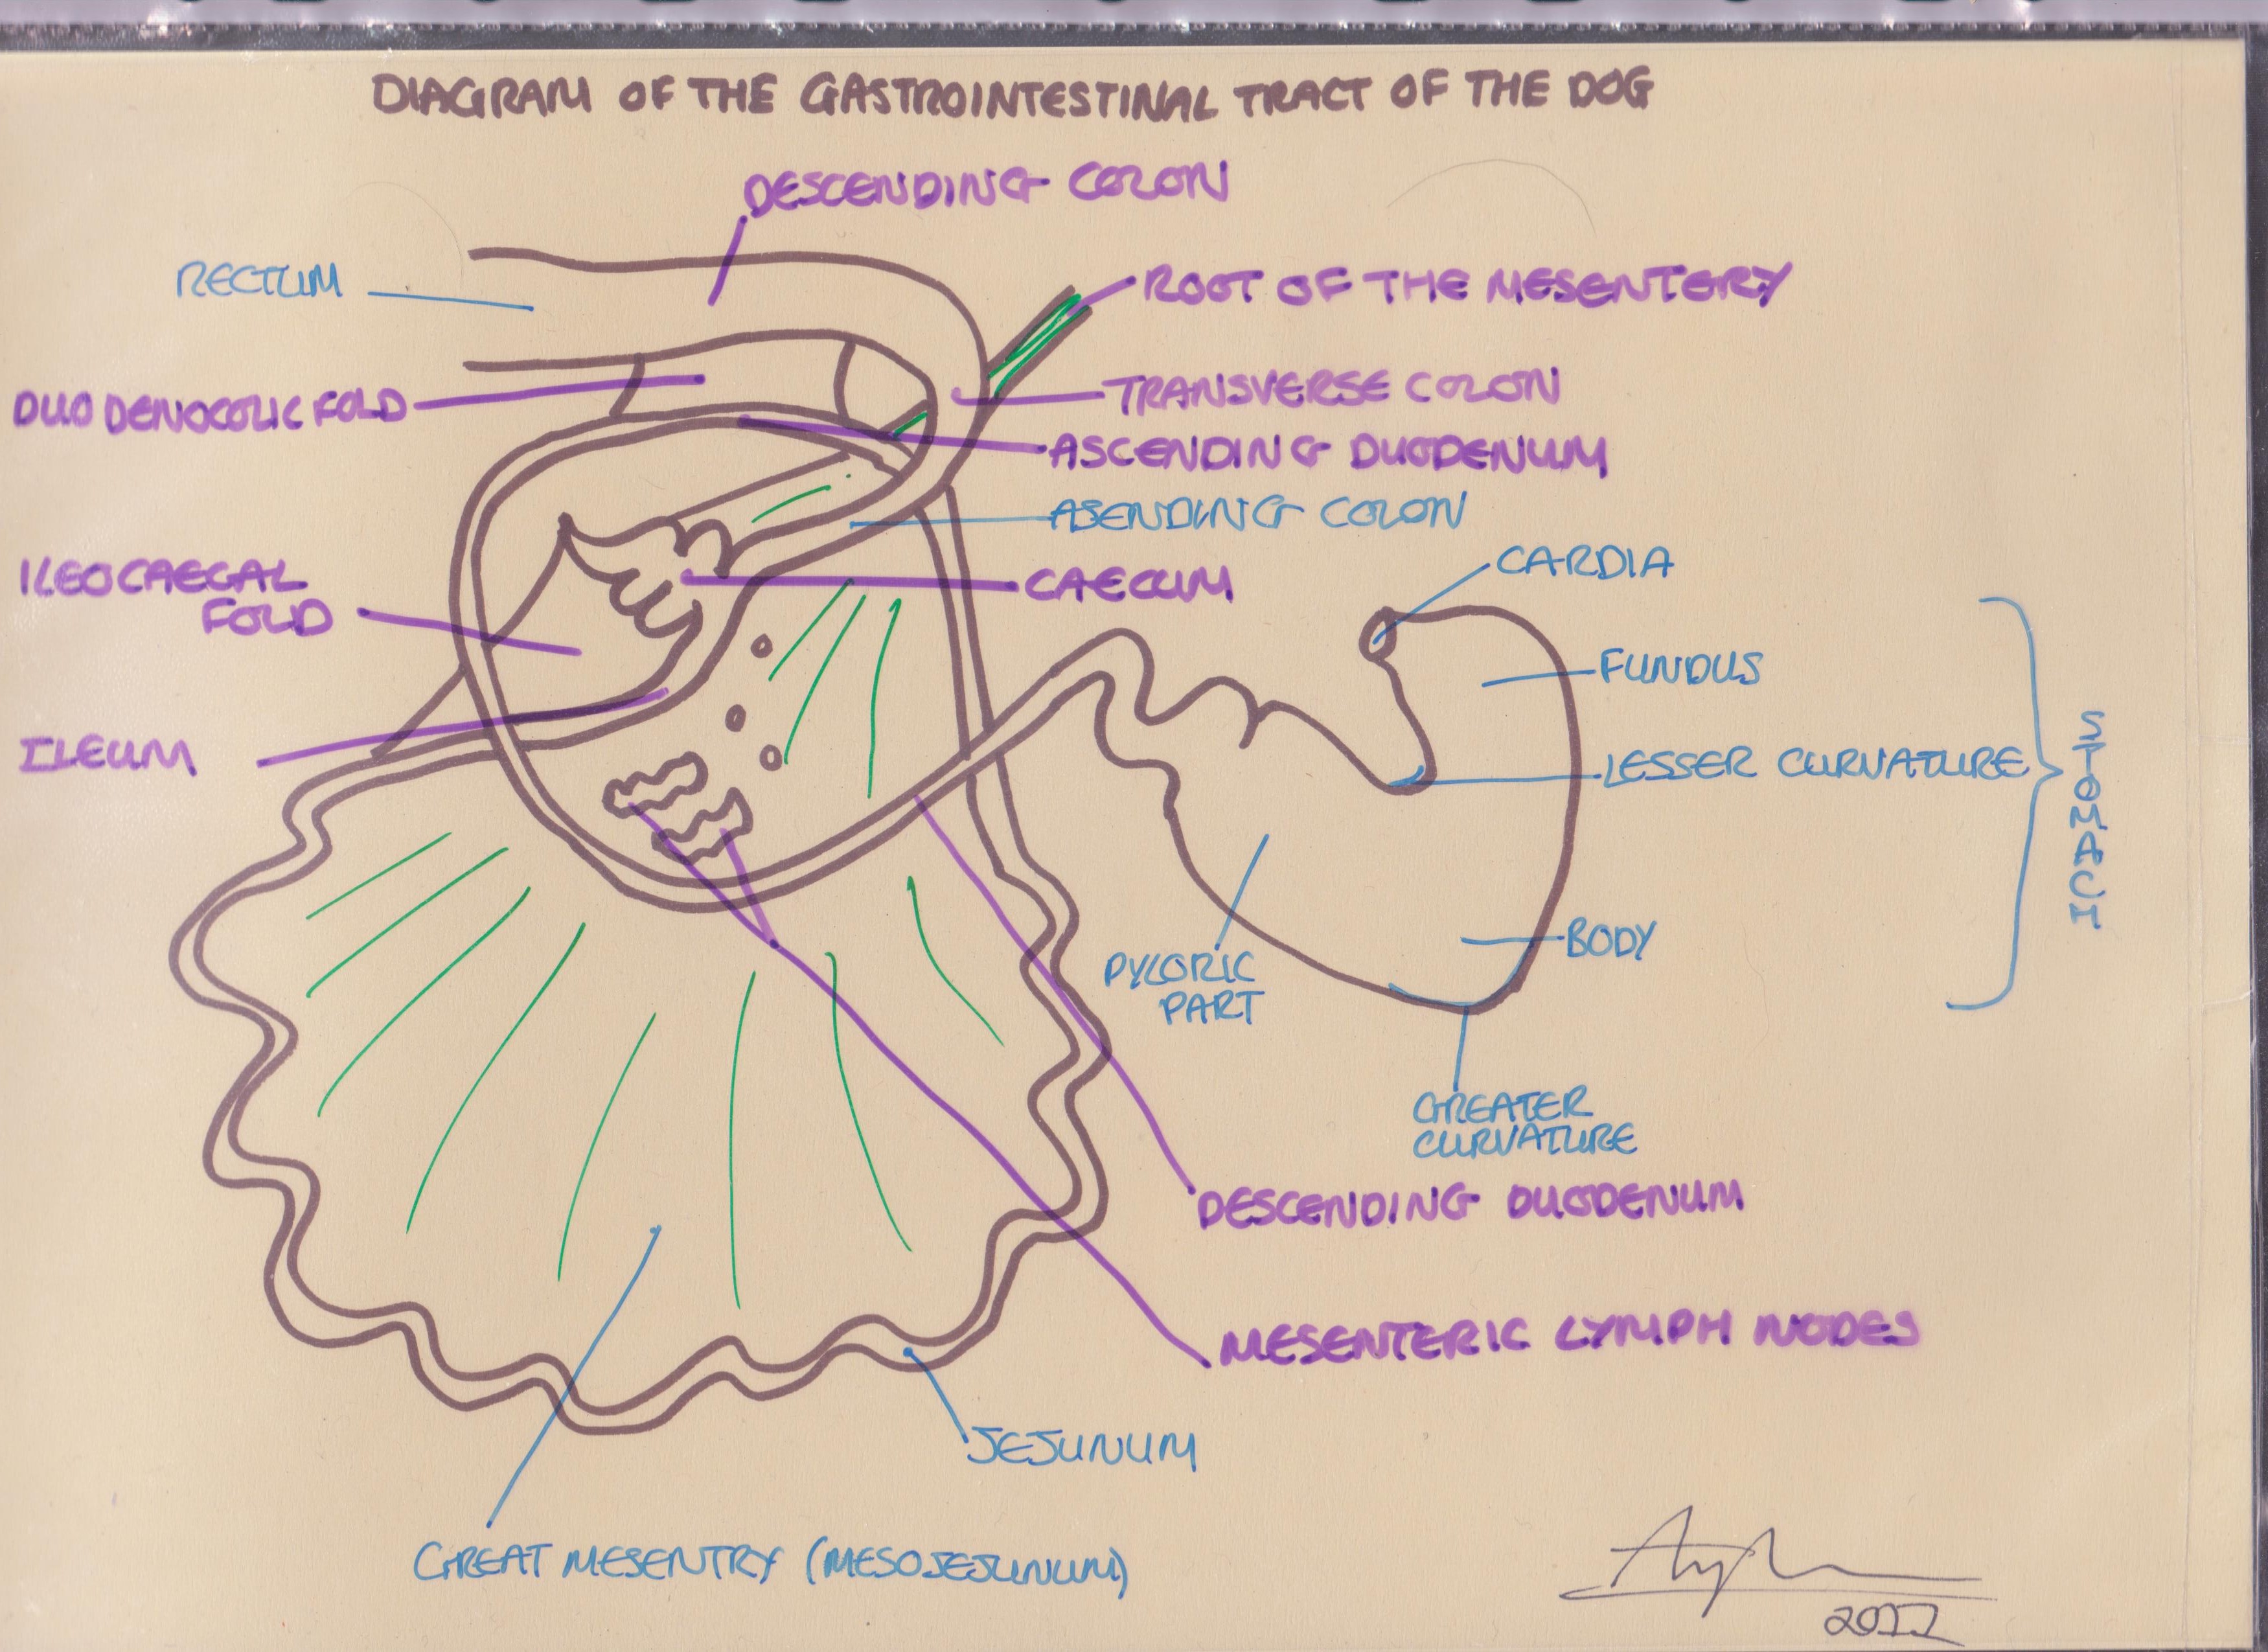 DIAGRAM OF THE GASTROINTESTINAL TRACT OF THE DOG
DESCENDING COLON
RECTUM
ROOT OF THE MESENTERY
DUODENOCOLIC FOLD
TRANSVERSE COLON
ASCENDING DUODENUM
ASENDING COLON
ILEOCAECAL
FOLD
CAECUM
CARDIA
FUNDUS
ILEUM
LESSER CURVATURE
STOMACH
BODY
PYLORIC
PART
GREATER
CURVATURE
DESCENDING DUODENUM
MESENTERIC LYMPH NODES
JEJUNUM
GREAT MESENTRY (MESOJEJUNUM)